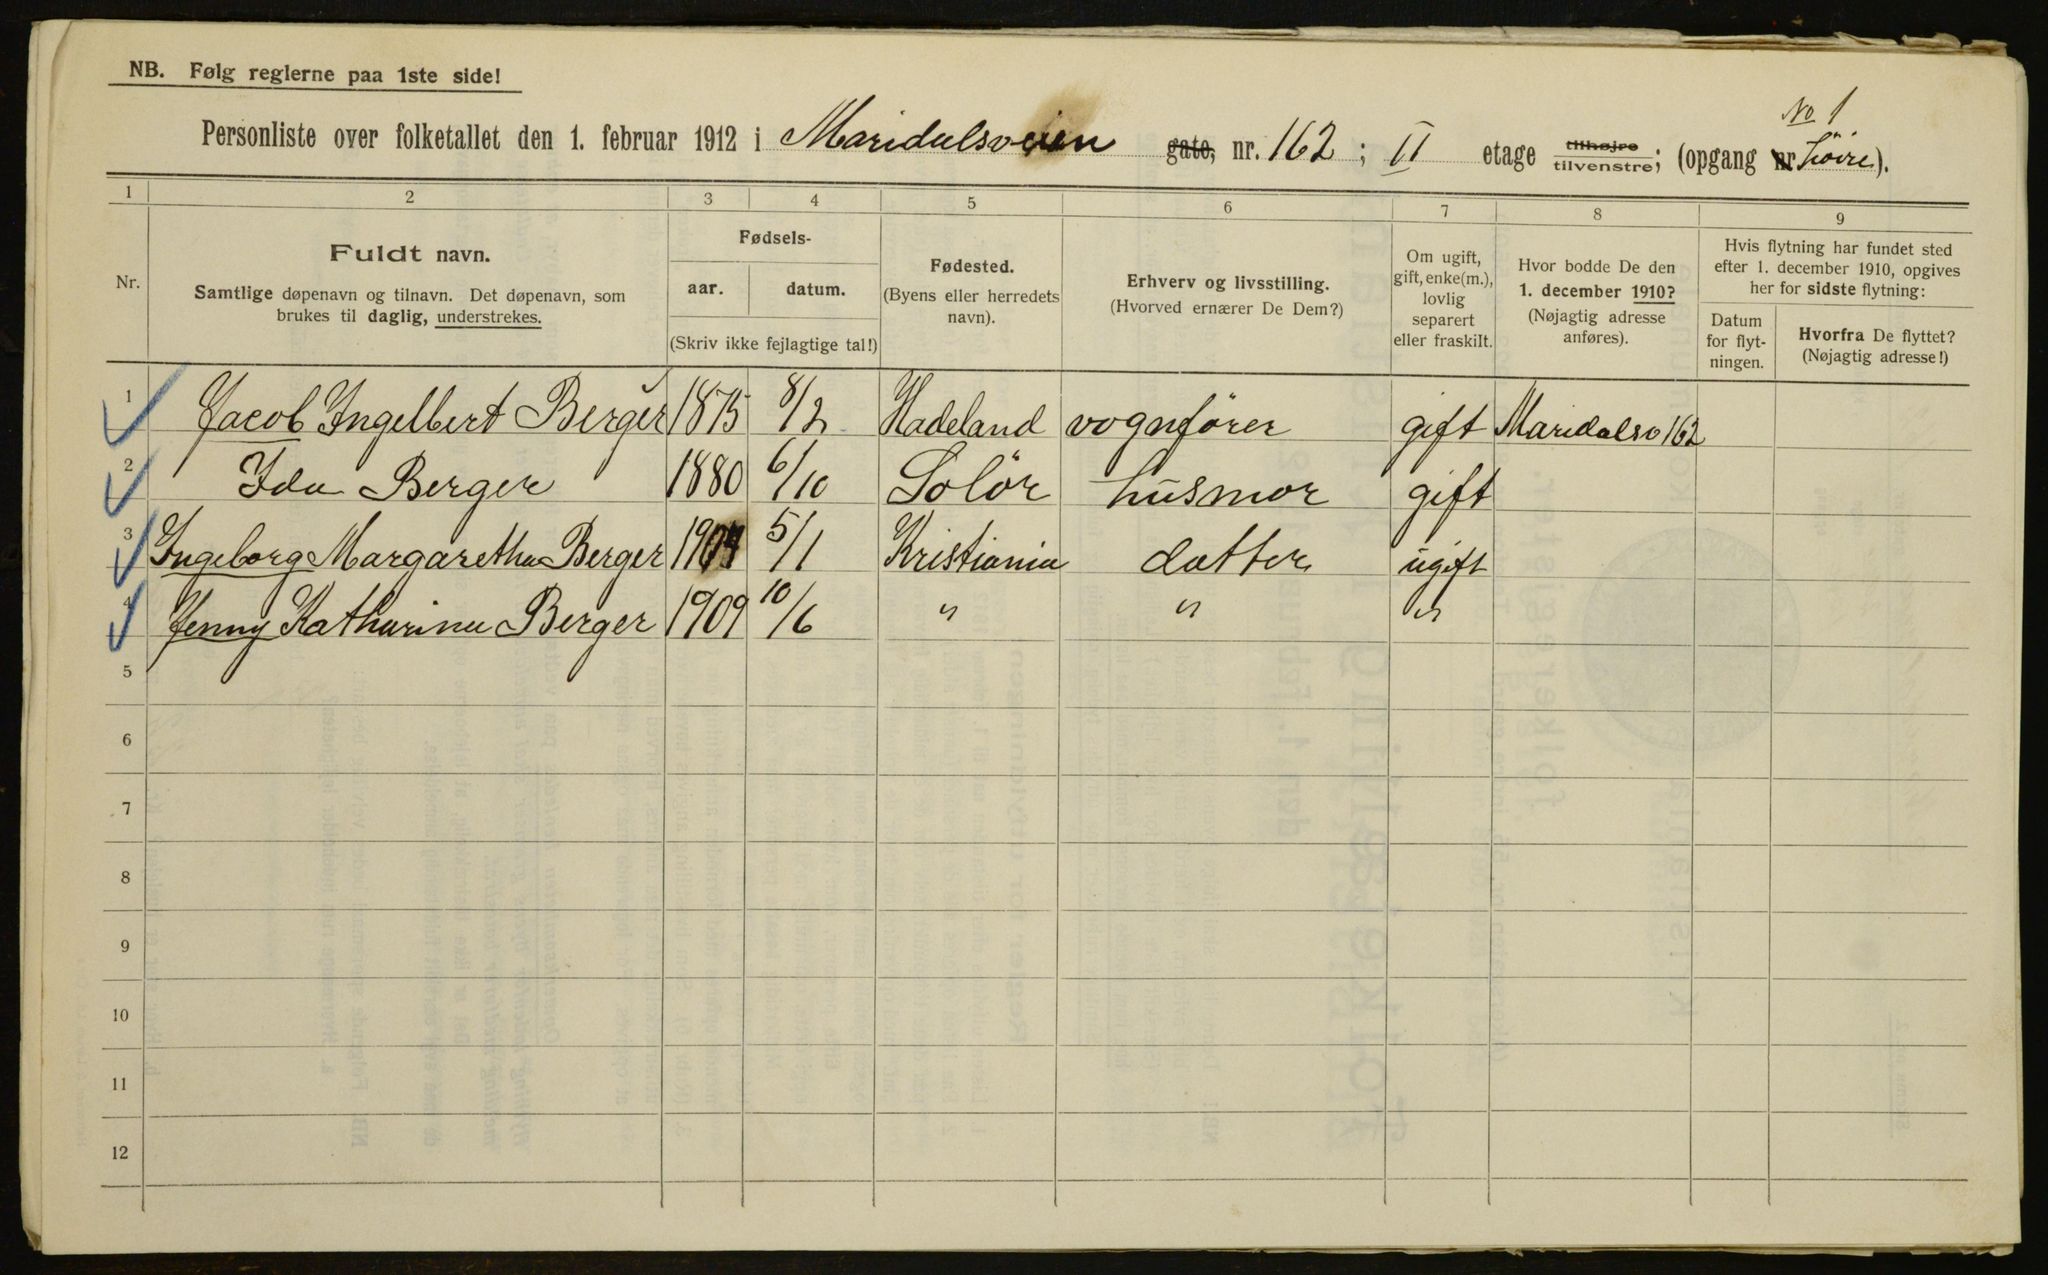 NB. Følg reglerne paa 1ste side!
No 1
Personliste over folketallet den 1. februar 1912 i Maridalsveien gate, nr. 162; II etage tilhøjre tilvenstre; (opgang nr höire).
1 2 3 4 5 6 7 8 9
Nr.
Fuldt navn.
Samtlige døpenavn og tilnavn. Det døpenavn, som
brukes til daglig, understrekes.
Fødsels-
aar. datum.
(Skriv ikke fejlagtige tal!)
Fødested.
(Byens eller herredets
navn).
Erhverv og livsstilling.
(Hvorved ernærer De Dem?)
Om ugift,
gift, enke(m.),
lovlig
separert
eller fraskilt.
Hvor bodde De den
1. december 1910?
(Nøjagtig adresse
anføres).
Hvis flytning har fundet sted
efter 1. december 1910, opgives
her for sidste flytning:
Datum
for flyt-
ningen.
Hvorfra De flyttet?
(Nøjagtig adresse!)
1 Jacob Ingelbert Berger 1875 8/2 Hadeland vognförer gift Maridalsv 162
2 Ida Berger 1880 6/10 Solör husmor gift
3 Ingeborg Margaretha Berger 5/1 Kristiania datter ugift
4 Jenny Katharina Berger 1909 10/6 " " "
5
6
7
8
9
10
11
12